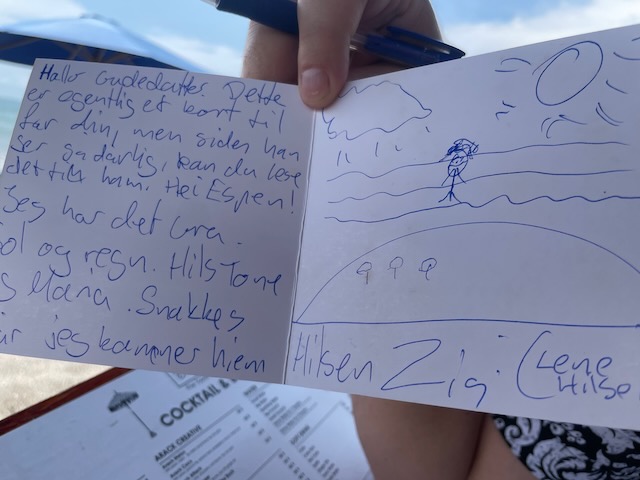 Hallo Gudedatter. Dette
er egentlig et kort til
far din, men siden han
ser så dårlig, kan du lese
det till ham. Hei Espen!
Jeg har det bra.
Sol og regn. Hils Tone
Maria. Snakkes
jeg kommer hjem
Hilsen Zig. (Lene
Hilse
COCKTAIL &
ARACK CREATIVE